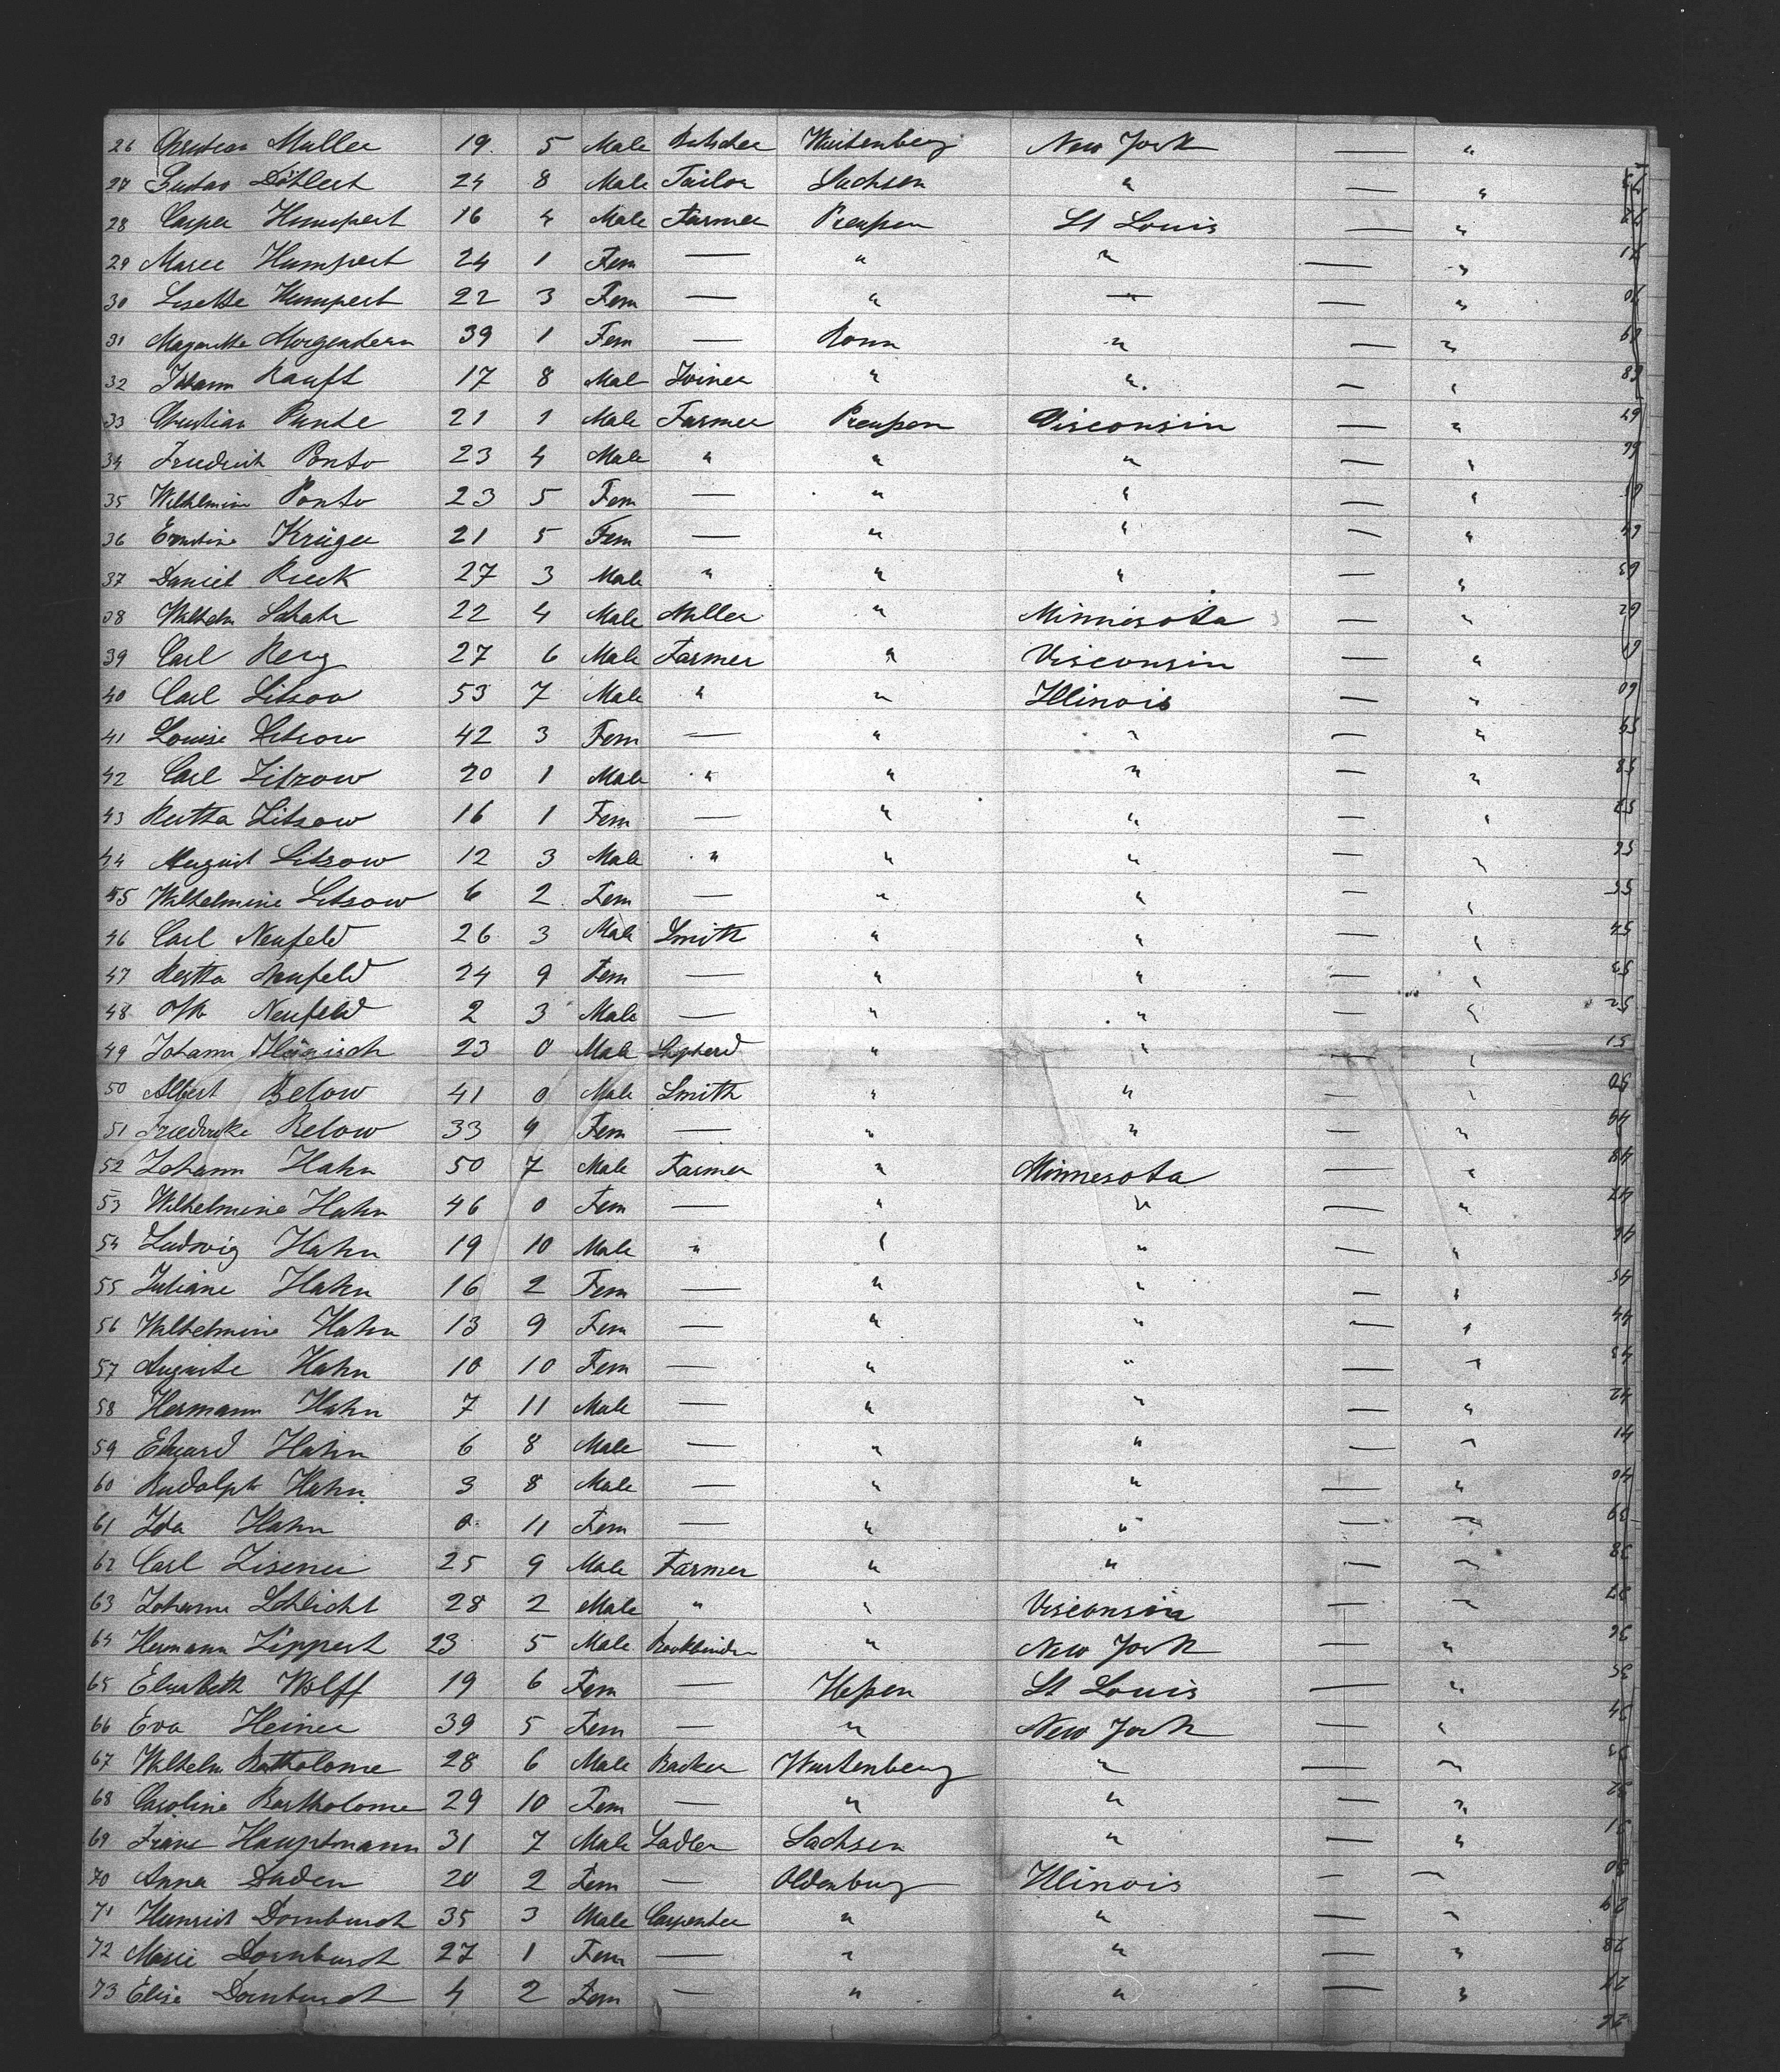 26 Christian Muller 19 5 Male Butscher Wurtenberg New York — "
27 Gustav Döhlert 24 8 Male Tailor Sachsen " — "
28 Casper Humpert 16 4 Male Farmer Preußen St Louis — "
29 Marie Humpert 24 1 Fem — " " — "
30 Lisette Humpert 22 3 Fem — " — — "
31 Margarethe Morgenstern 39 1 Fem — Bonn " — "
32 Johann Rauft 17 8 Mal Joiner " " — "
33 Christian Punte 21 1 Male Farmer Preußen Visconsin — "
34 Friedrich Ponto 23 4 Male " " " — "
35 Wilhelmine Ponto 23 5 Fem — " " — "
36 Ernstine Krüger 21 5 Fem — " " — "
37 Daniel Rieck 27 3 Male " " " — "
38 Wilhelm 22 4 Male Miller " Minnisota — "
39 Carl Berg 27 6 Male Farmer " Visconsin — "
40 Carl Litzow 53 7 Male " " Illinois — "
41 Louise Litzow 42 3 Fem — " " — "
42 Carl Litzow 20 1 Male " " " — "
43 Bertha Litzow 16 1 Fem — " " — "
44 August Litzow 12 3 Male " " " — "
45 Wilhelmine Litzow 6 2 Fem — " " — "
46 Carl Neufeld 26 3 Male Smith " " — "
47 Bertha Neufeld 24 9 Fem — " " — "
48 Otto Neufeld 2 3 Male — " " — "
49 Johann 23 0 Male Shpherd " " — "
50 Albert Below 41 0 Male Smith " " — "
51 Friedericke Below 33 9 Fem — " " — "
52 Johann Hahn 50 7 Male Farmer " Minnesota — "
53 Wilhelmine Hahn 46 0 Fem — " " — "
54 Ludwig Hahn 19 10 Male " " " — "
55 Juliane Hahn 16 2 Fem — " " — "
56 Wilhelmine Hahn 13 9 Fem — " " — "
57 Auguste Hahn 10 10 Fem — " " — "
58 Hermann Hahn 7 11 Male — " " — "
59 Eduard Hahn 6 8 Male — " " — "
60 Rudolph Hahn 3 8 Male — " " — "
61 Ida Hahn 0 11 Fem — " " — "
62 Carl 25 9 Male Farmer " " — "
63 Johann Schlicht 28 2 Male " " Visconsin — "
64 Hermann Lippert 23 5 Male Bookbinder " New York — "
65 Elisabeth Wolff 19 6 Fem — Heßen St Louis — "
66 Eva Heiner 39 5 Fem — " New York — "
67 Wilhelm Bartholome 28 6 Male Backer Wurtenberg " — "
68 Caroline Bartholome 29 10 Fem — " " — "
69 Franz Hauptmann 31 7 Male Sadler Sachsen " — "
70 Anna Daden 20 2 Fem — Oldenburg Illinois — "
71 Heinrich Dornbusch 35 3 Male Carpenter " " — "
72 Marie Dornbusch 27 1 Fem — " " — "
73 Elise Dornbusch 4 2 Fem — " " — "